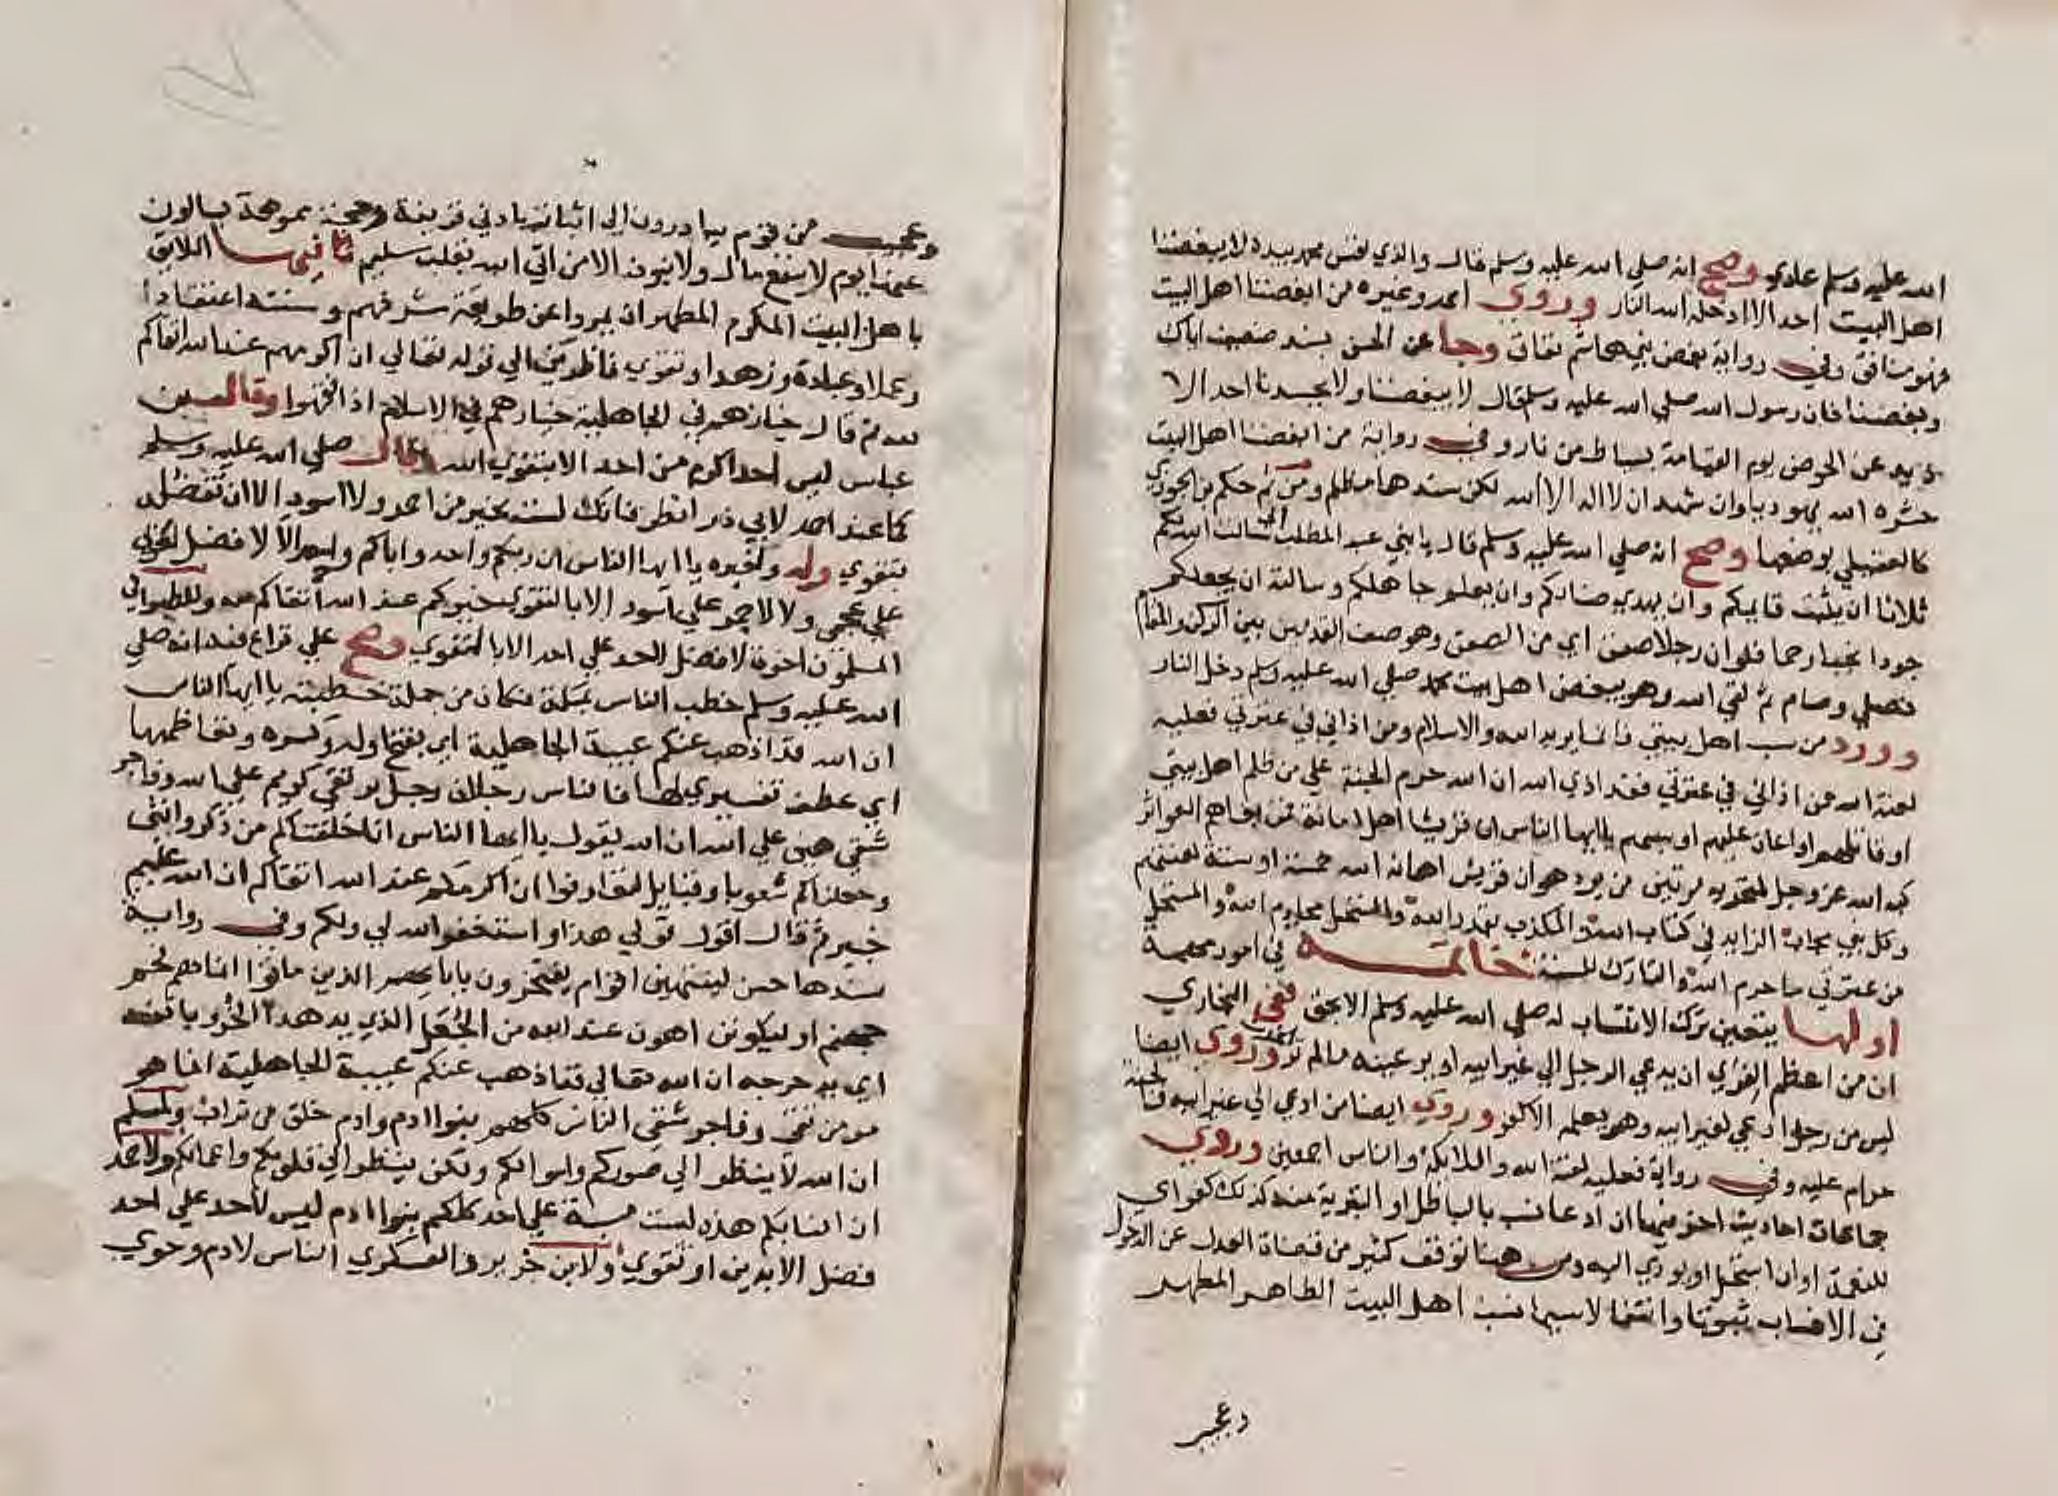 الله عليه وسلم عادي وصح انه صلي الله عليه وسلم قال والذي نفس محمد بيده لا يبغضنا
اهل البيت احد الا ادخله الله النار وروي احمد وغيره من ابغضنا اهل البيت
فهو منافق وفي رواية بغض بني هاشم نفاق وجا عن الحسن بسند ضعيف اياك
وبغضنا فان رسول الله صلي الله عليه وسلم قال لا يبغضنا ولا يحسدنا احد الا
ذيد عن الحوض يوم القيامة بسياط من نار وفي رواية من ابغضنا اهل البيت
حشره الله يهوديا وان شهد ان لا اله الا الله لكن سندهما مظلم ومن ثم حكم بن الجوزي
كالعقيلي بوضعها وصح انه صلي الله عليه وسلم قال يا بني عبد المطلب اني سالت الله لكم
ثلاثا ان يثبت قايمكم وان يهدي ضالكم وان يعلم جاهلكم وسالته ان يجعلكم
جودا نجبا رحما فلو ان رجلا صفن اي من الصفن وهو صف القدمين بين الركن والمقام
فصلي وصام ثم لقي الله وهو يبغض اهل بيت محمد صلي الله عليه وسلم دخل النار
وورد من سب اهل بيتي فانما يريد الله والاسلام ومن اذاني في عترتي فعليه
لعنة الله من اذاني في عترتي فقد اذي الله ان الله حرم الجنة علي من ظلم اهل بيتي
او قاتلهم او اعان عليهم او سبهم يا ايها الناس ان قريشا اهل امانة فمن بغاهم العواثر
كبه الله عز وجل لمنخريه مرتين من يرد هوان قريش اهانه الله خمسة او ستة لعنتهم
وكل نبي مجاب الزايد في كتاب الله والمكذب بقدر الله والمستحل محارم الله والمستحل
من عترتي ما حرم الله والتارك للسنة خاتمة في امور مهمة
اولها يتعين ترك الانتساب له صلي الله عليه وسلم الا بحق ففي البخاري
ان من اعظم الفري ان يدعي الرجل الي غير ابيه او يري عينه ما لم تر وروي ايضا
ليس من رجل ادعي لغير ابيه وهو يعلمه الا كفر وروي ايضا من ادعي الي غير ابيه فالجنة
حرام عليه وفي رواية فعليه لعنة الله والملايكة والناس اجمعين وروي
جماعات احاديث اخر فيها ان ادعا نسب بالباطل او التبرية منه كذلك كفر اي
للنعمة او ان استحل او يودي اليه ومن هنا توقف كثير من قضاة العدل عن الدخول
في الانساب ثبوتا وانتفا لا سيما نسب اهل البيت الطاهر المطهر
وعجب
وعجيب من قوم يبادرون الي اثباته بادني قرينة وحجة مموهة يسالون
عنها يوم لا ينفع مال ولا بنون الا من اتي الله بقلب سليم ثانيها اللايق
باهل البيت المكرم المطهر ان يجروا علي طريقة مشرفهم وسنته اعتقادا
وعملا وعبادة وزهدا وتقوي ناظرين الي قوله تعالي ان اكرمهم عند الله اتقاكم
ثم قال خيارهم في الجاهلية خيارهم في الاسلام اذا فقهوا وقال بن
عباس ليس احد اكرم من احد الا بتقوي الله وقال صلي الله عليه وسلم
كما عند احمد لابي ذر انظر فانك لست بخير من احمر ولا اسود الا ان تفضل
بتقوي وله ولغيره يا ايها الناس ان ربكم واحد واباكم واحد الا لا فضل لعربي
علي عجمي ولا لاحمر علي اسود الا بالتقوي خيركم عند الله اتقاكم وللطبراني
المسلمون اخوة لا فضل لاحد علي احد الا بالتقوي وصح علي نزاع فيه انه صلي
الله عليه وسلم خطب الناس بمكة فكان من جملة خطبته يا ايها الناس
ان الله قد اذهب عنكم عبية الجاهلية اي بفتح اوله وكسره وتعاظمها
اي عطف تفسيري لها فالناس رجلان رجل بر تقي كريم علي الله وفاجر
شقي هين علي الله ان الله يقول يا ايها الناس انا خلقناكم من ذكر وانثي
وجعلناكم شعوبا وقبايل لتعارفوا ان اكرمكم عند الله اتقاكم ان الله عليم
خبير ثم قال اقول قولي هذا واستغفر الله لي ولكم وفي رواية
سندها حسن لينتهين اقوام يفتخرون باباءهم الذين ماتوا انما هم لحم
جهنم او ليكونن اهون عند الله من الجعل الذي يدهده الخرو بانفه
اي يدحرجه ان الله تعالي قد اذهب عنكم عبية الجاهلية انما هو
مومن تقي وفاجر شقي الناس كلهم بنوا ادم وادم خلق من تراب ولمسلم
ان الله لا ينظر الي صوركم واموالكم ولكن ينظر الي قلوبكم واعمالكم ولاحمد
ان انسابكم هذه ليست مسبة علي احد كلكم بنوا ادم ليس لاحد علي احد
فضل الا بدين او تقوي ولابن جرير والعسكري الناس لادم وحوي